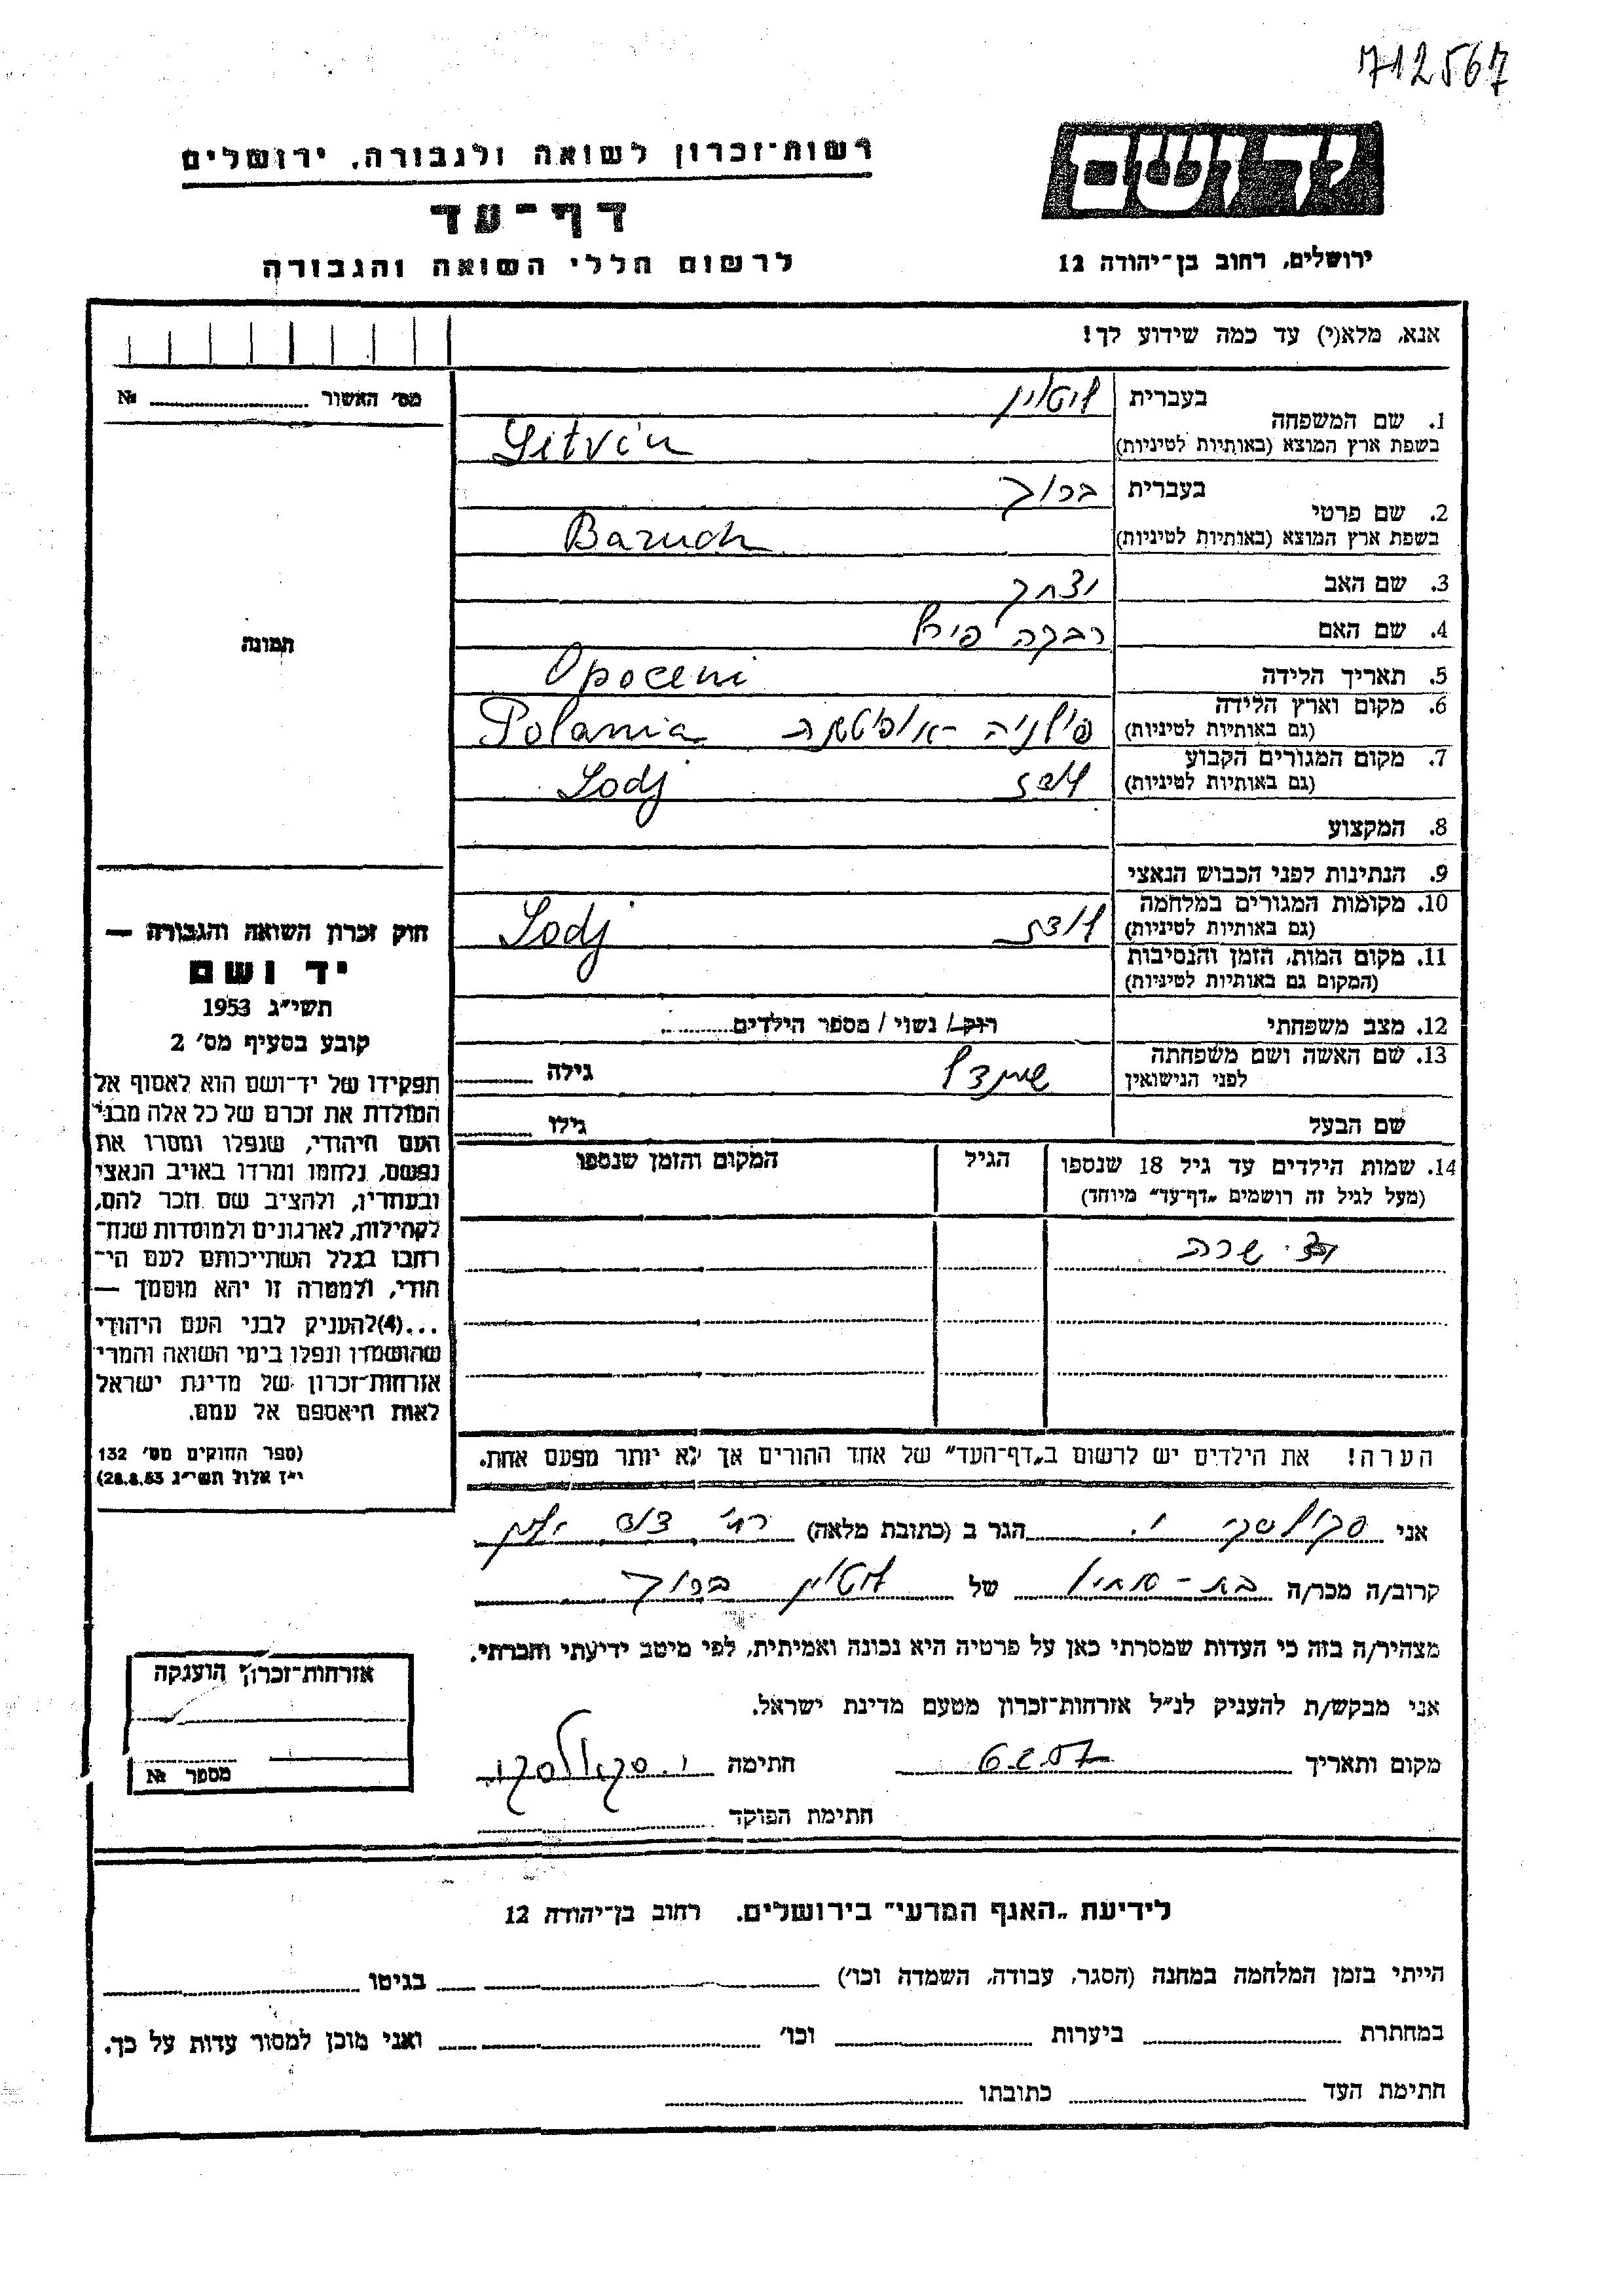 712567
רשות-זכרון לשואה ולגבורה, ירושלים
דף-עד
לרשום חללי השואה והגבורה
ידושם
ירושלים, רחוב בן-יהודה 12
אנא, מלא(י) עד כמה שידוע לך!
מס' האשור № 
1. שם המשפחה
בעברית
בשפת ארץ המוצא (באותיות לטיניות) Litvin
2. שם פרטי
בעברית ברוך
בשפת ארץ המוצא (באותיות לטיניות) Baruch
3. שם האב יצחק
4. שם האם רבקה
5. תאריך הלידה Opoceni
6. מקום וארץ הלידה
(גם באותיות לטיניות) Polania
7. מקום המגורים הקבוע
(גם באותיות לטיניות) לודז Lodj
8. המקצוע
9. הנתינות לפני הכבוש הנאצי
10. מקומות המגורים במלחמה
(גם באותיות לטיניות) לודז Lodj
11. מקום המות, הזמן והנסיבות
(המקום גם באותיות לטיניות)
12. מצב משפחתי רוק/ נשוי / מספר הילדים
13. שם האשה ושם משפחתה
לפני הנישואין גילה
שם הבעל גילו
14. שמות הילדים עד גיל 18 שנספו הגיל המקום והזמן שנספו
(מעל לגיל זה רושמים "דף-עד" מיוחד)
שרה
הערה! את הילדים יש לרשום ב"דף-העד" של אחד ההורים אך לא יותר מפעם אחת.
תמונה
חוק זכרון השואה והגבורה —
יד ושם
תשי"ג 1953
קובע בסעיף מס' 2
תפקידו של יד-ושם הוא לאסוף אל
המולדת את זכרם של כל אלה מבני
העם היהודי, שנפלו ומסרו את
נפשם, נלחמו ומרדו באויב הנאצי
ובעוזריו, ולהציב שם וזכר להם,
לקהילות, לארגונים ולמוסדות שנח-
רבו בגלל השתייכותם לעם הי-
הודי, ולמטרה זו יהא מוסמך —
...(4)להעניק לבני העם היהודי
שהושמדו ונפלו בימי השואה והמרי
אזרחות-זכרון של מדינת ישראל
לאות היאספם אל עמם.
(ספר החוקים מס' 132
י"ז אלול תשי"ג 28.8.53)
אני הגר ב (כתובת מלאה)
קרוב/ה מכר/ה של ברוך
מצהיר/ה בזה כי העדות שמסרתי כאן על פרטיה היא נכונה ואמיתית, לפי מיטב ידיעתי והכרתי.
אני מבקש/ת להעניק לנ"ל אזרחות-זכרון מטעם מדינת ישראל.
מקום ותאריך חתימה
חתימת הפוקד
אזרחות-זכרון הוענקה
מספר №
לידיעת "האגף המדעי" בירושלים, רחוב בן-יהודה 12
הייתי בזמן המלחמה במחנה (הסגר, עבודה, השמדה וכו') בגיטו
במחתרת ביערות וכו' ואני מוכן למסור עדות על כך.
חתימת העד כתובתו